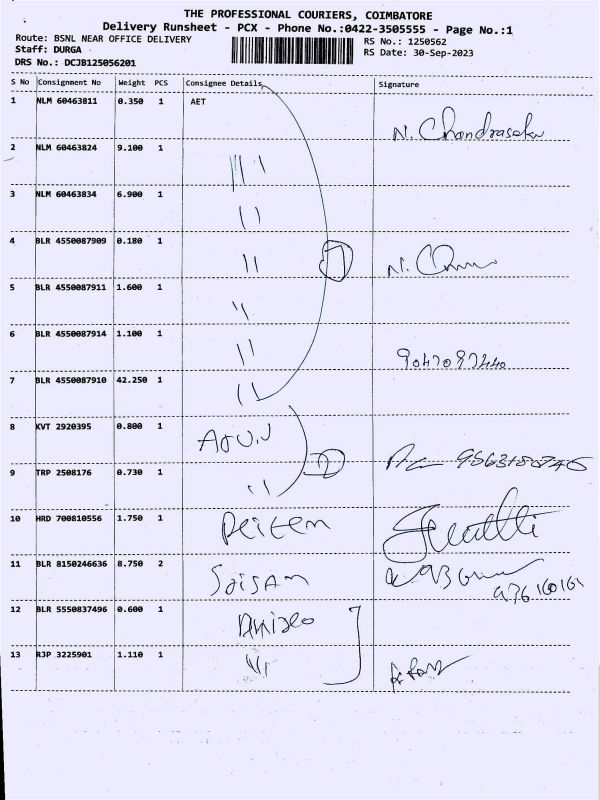 THE PROFESSIONAL COURIERS, COIMBATORE
Delivery Runsheet - PCX - Phone No.:0422-3505555 - Page No.:1
Route: BSNL NEAR OFFICE DELIVERY
RS No.: 1250562
Staff: DURGA
RS Date: 30-Sep-2023
DRS No.: DCJB125056201
S No Consignment No Weight PCS Consignee Details Signature
1 NLM 60463811 0.350 1 AET
N. Chandraseka
2 NLM 60463824 9.100 1 "
3 NLM 60463834 6.900 1 "
4 BLR 4550087909 0.180 1 " 7
5 BLR 4550087911 1.600 1 "
6 BLR 4550087914 1.100 1 "
7 BLR 4550087910 42.250 1 "
8 KVT 2920395 0.800 1
9 TRP 2508176 0.730 1 " 2
10 HRD 700810556 1.750 1
11 BLR 8150246636 8.750 2
12 BLR 5550837496 0.600 1
13 RJP 3225901 1.110 1 "